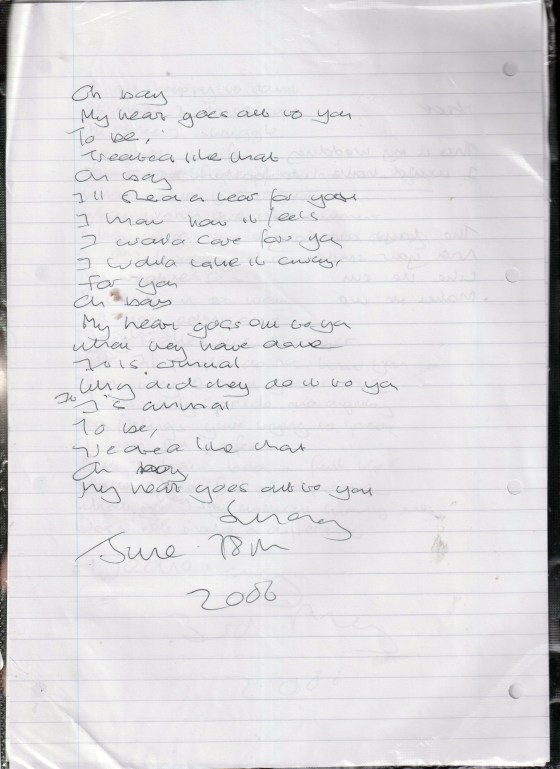 Oh baby
My heart goes out to you
To be,
Treated like that
Oh baby
I'll shed a tear for you
I know how it feels
I would care for you
I would take it away,
For you
Oh baby
My heart goes out to ya
What they have done
It is criminal
Why did they do it to ya
It's animal
To be,
Treated like that
Oh baby
My heart goes out to you
June 28th
2006